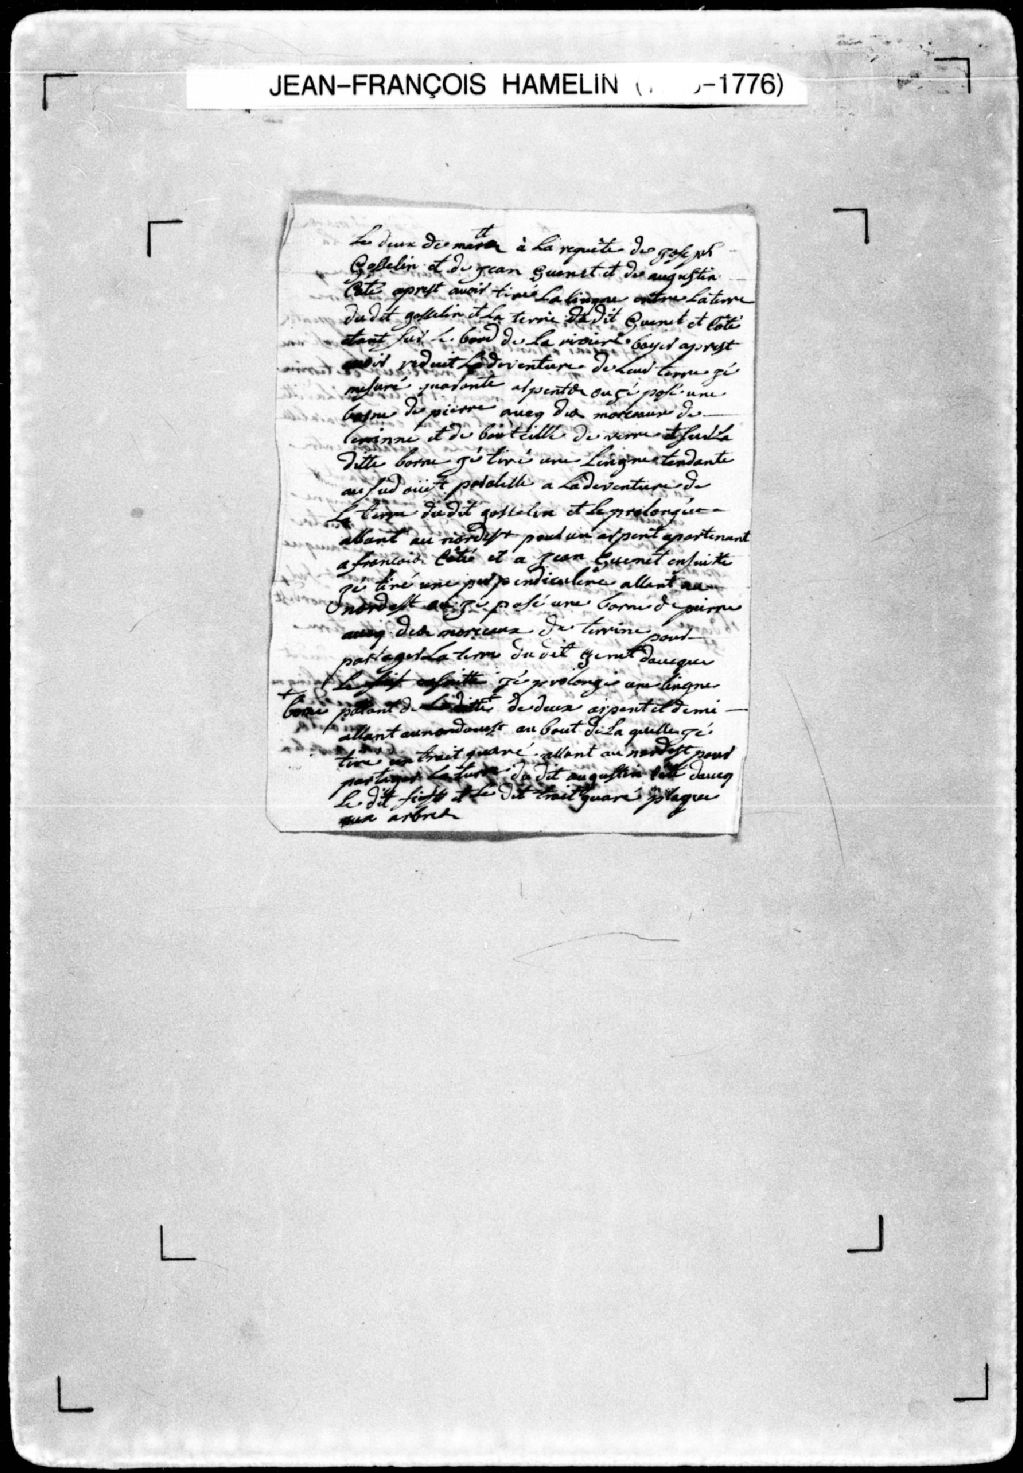 JEAN-FRANÇOIS HAMELIN ( -1776)
Le deux de à La requête de joseph
Gosselin et de jean Guenet et de augustin
Coté aprest avoir tiré La lingne entre La terre
du dit gosselin et La terre du dit Guenet et Coté
etant sur le bord de La riviere boyer aprest
avoir reduit La deventure de leur terre gé
mesuré quarante arpents ou gé posé une
borne de pierre avecq des morceaux de
terrinne et de bouteille de verre et sur La
ditte borne gé tiré une Lingne tendante
au sud ouist paralelle a La deventure de
La terre du dit gosselin et Le prolongée
allant au nordest pour un arpent apartenant
a francois Côté et a jean Guenet ensuitte
gé tiré une perpendiculere allant au
nordest ou gé posé une borne de pierre
avecq des morceaux de terrine pour
partager La terre du dit Genet davecque
Le gé prolongé une lingne
+ borne
patant de La ditte + de deux arpent et demi
allant au nordouest au bout de La quelle gé
tire un trait quaré allant au nordest pour
partager La terre du dit augustin Côté davecq
Le dit et le dit trait quaré plaquee
aux arbres